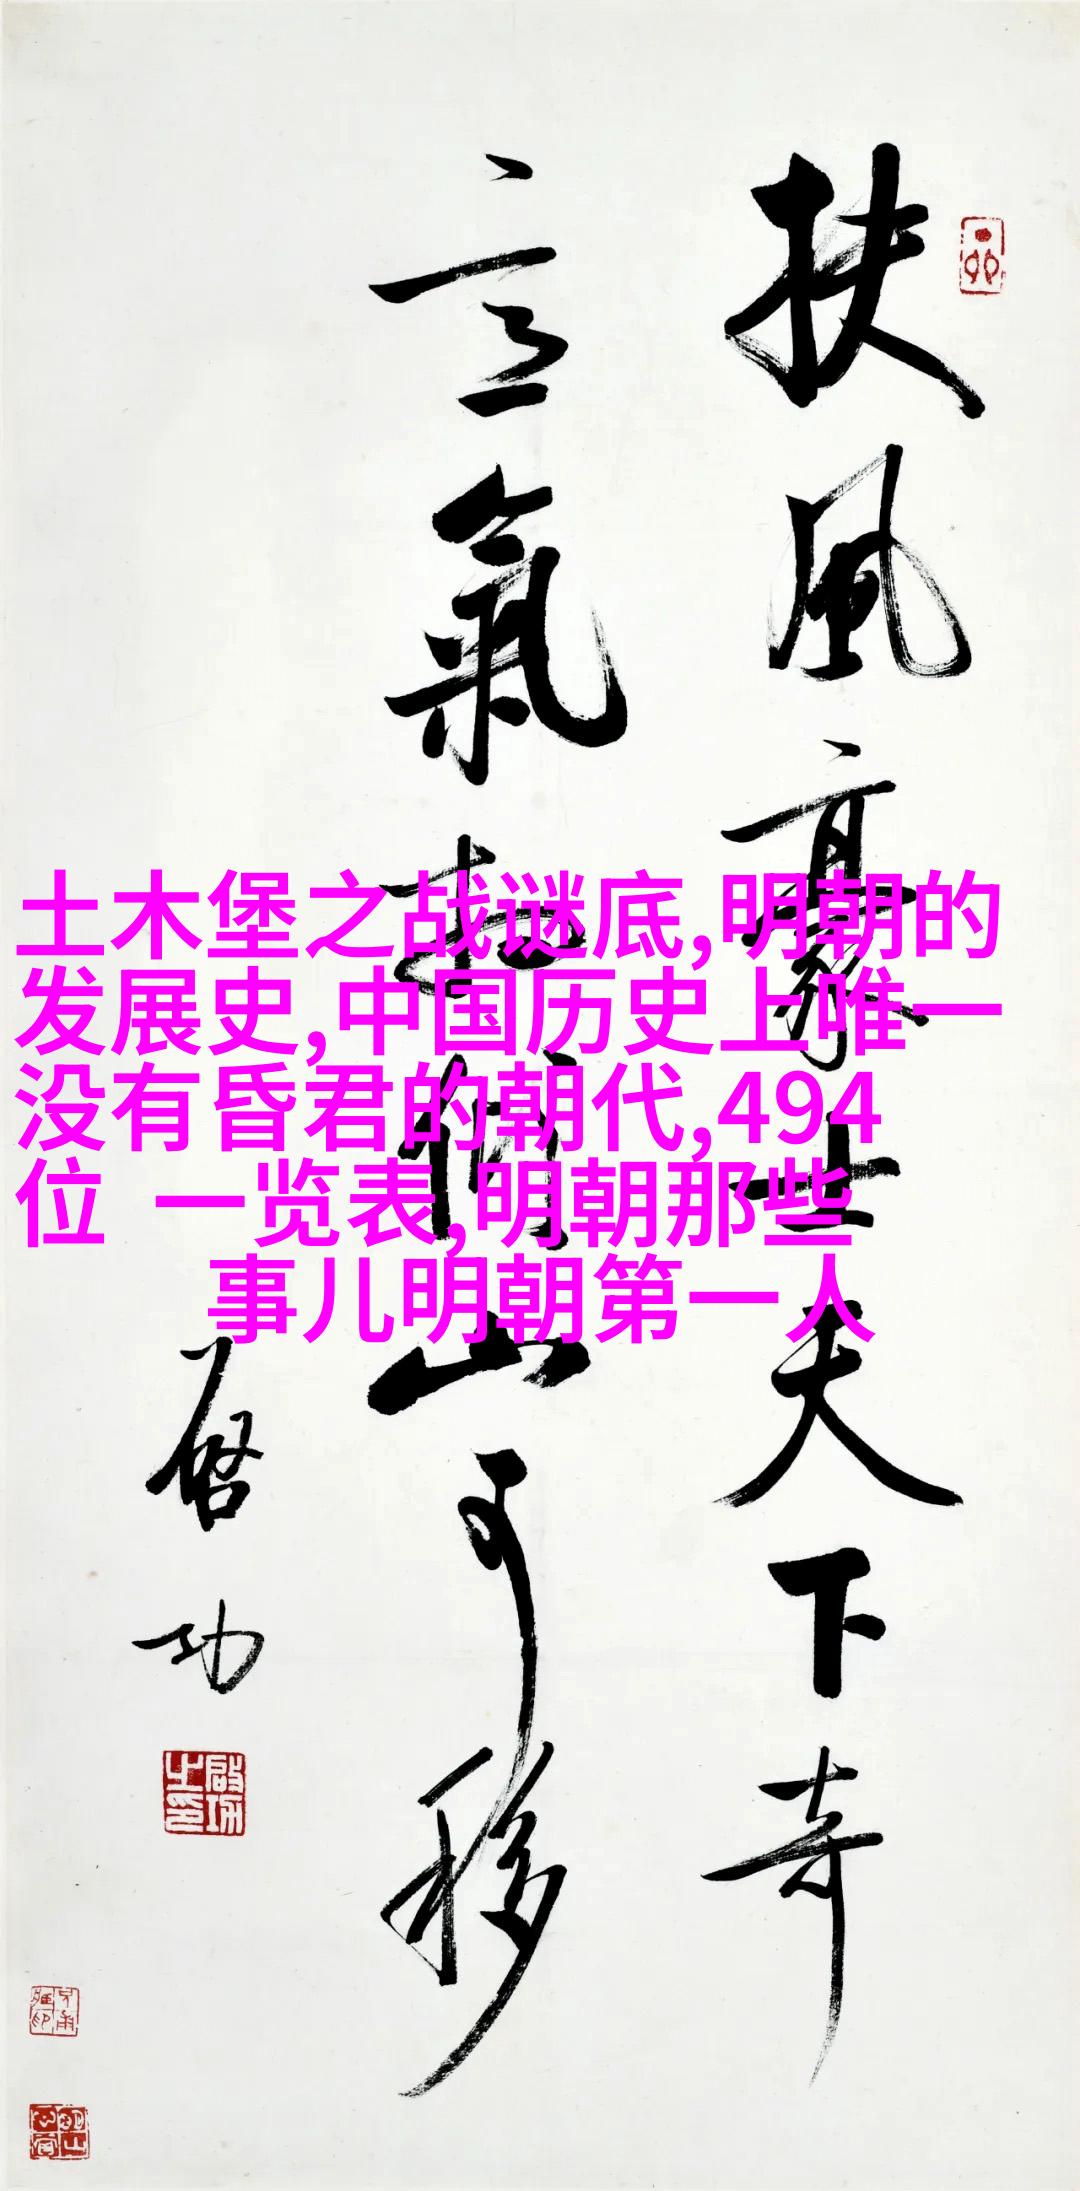 土木堡之战谜底,明朝的
发展史,中国历史上唯一
没有昏君的朝代,494
位 一览表,明朝那些
事儿明朝第一人
扶風豪士天下奇
意氣相傾山可移
啓功
啟功之印